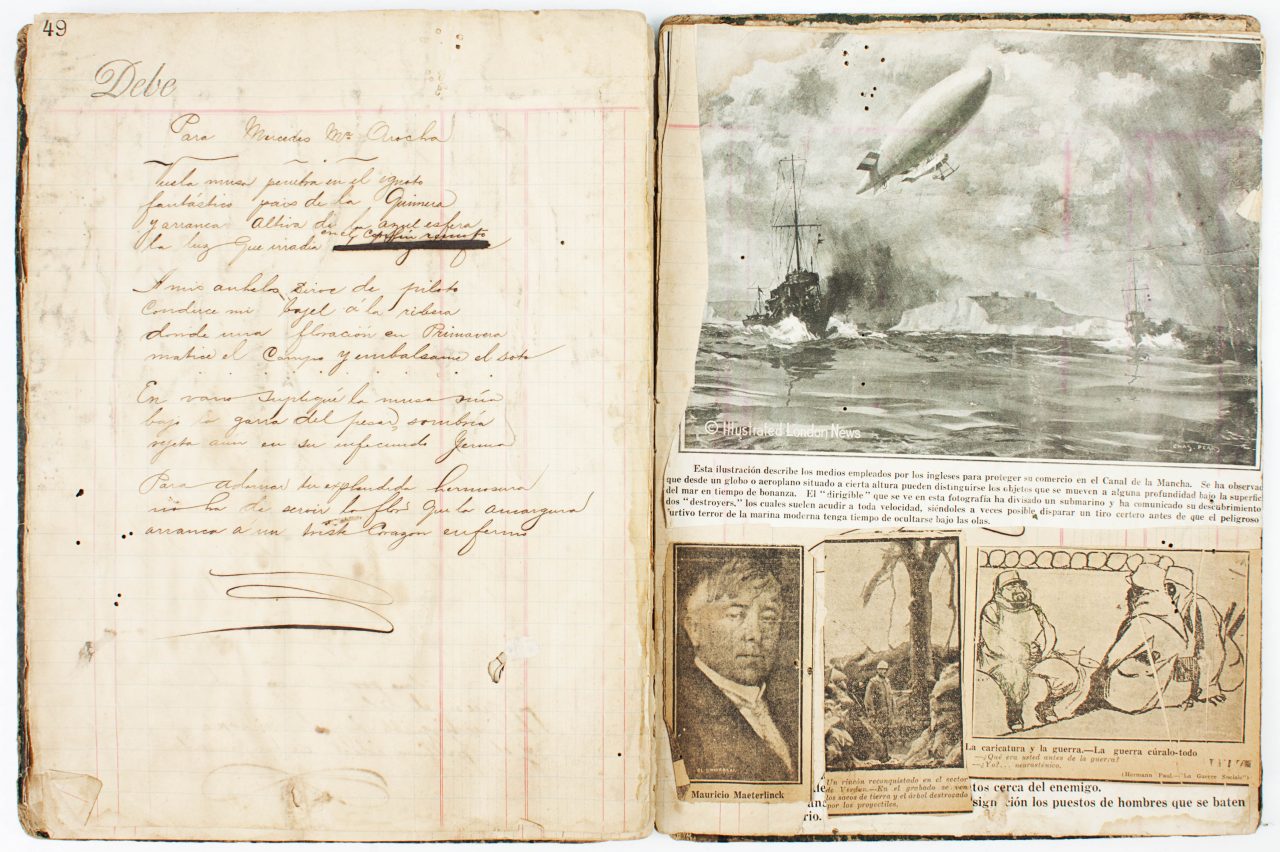 49
Debe
Para Mercedes Mª Arocha
Vuela musa penetra en el ignoto
fantástico pais de la Quimera
y arranca altiva de la azul esfera
la luz que irradia en el confin remoto
A mis anhelos sirve de piloto
Conduce mi bajel á la ribera
donde una floración en Primavera
matice el Campo y embalsame el soto
En vano supliqué la musa mía
bajo la garra del pesar sombría
sujeta aun en su infecundo
Para adornar tu explendida hermosura
no ha de servir la flor que la amargura
arranca a un triste Corazon enfermo
© Illustrated London News
Esta ilustración describe los medios empleados por los ingleses para proteger su comercio en el Canal de la Mancha. Se ha observad
que desde un globo o aeroplano situado a cierta altura pueden distinguirse los objetos que se mueven a alguna profundidad bajo la superfic
del mar en tiempo de bonanza. El "dirigible" que se ve en esta fotografía ha divisado un submarino y ha comunicado su descubrimiento
dos "destroyers," los cuales suelen acudir a toda velocidad, siéndoles a veces posible disparar un tiro certero antes de que el peligroso
furtivo terror de la marina moderna tenga tiempo de ocultarse bajo las olas.
Mauricio Maeterlinck
Un rincón reconquistado en el sector
de Verdun.—En el grabado se ven
los sacos de tierra y el árbol destrozado
por los proyectiles.
La caricatura y la guerra.—La guerra cúralo-todo
—¿Qué era usted antes de la guerra?
—¿Yo?... neurasténico.
(Hermann Paul.—"La Guerre Sociale")
tos cerca del enemigo.
ción los puestos de hombres que se baten
rio.